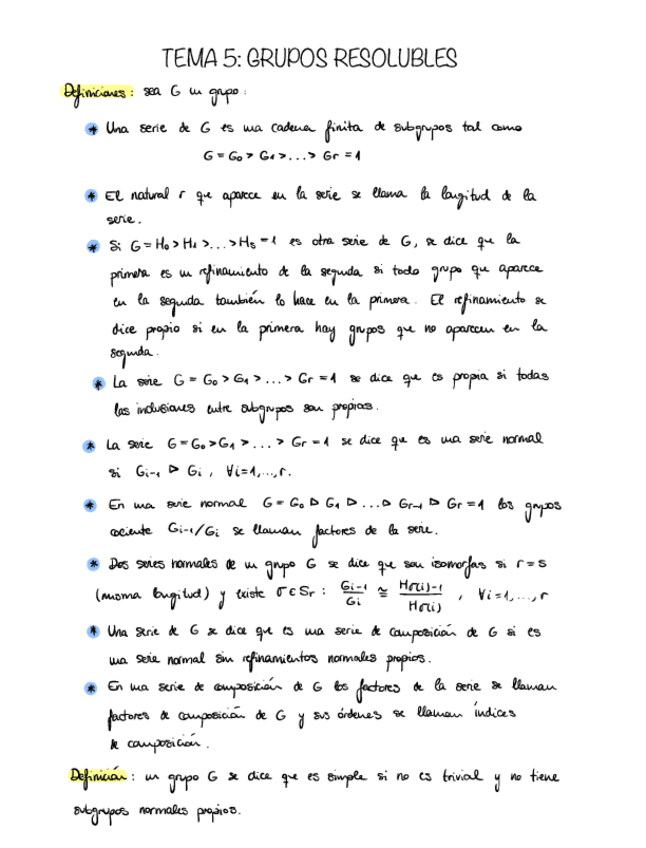 TEMA 5: GRUPOS RESOLUBLES
Definiciones: sea G un grupo:
* Una serie de G es una cadena finita de subgrupos tal como
G = G₀ > G₁ > ... > Gr = 1
* El natural r que aparece en la serie se llama la longitud de la
serie.
* Si G = H₀ > H₁ > ... > Hs = 1 es otra serie de G, se dice que la
primera es un refinamiento de la segunda si todo grupo que aparece
en la segunda también lo hace en la primera. El refinamiento se
dice propio si en la primera hay grupos que no aparecen en la
segunda.
* La serie G = G₀ > G₁ > ... > Gr = 1 se dice que es propia si todas
las inclusiones entre subgrupos son propias.
* La serie G = G₀ > G₁ > ... > Gr = 1 se dice que es una serie normal
si Gi-1 ▷ Gi , ∀i=1,...,r.
* En una serie normal G = G₀ ▷ G₁ ▷ ... ▷ Gr-1 ▷ Gr = 1 los grupos
cociente Gi-1/Gi se llaman factores de la serie.
* Dos series normales de un grupo G se dice que son isomorfas si r = s
(misma longitud) y existe σ ∈ Sr : Gi-1/Gi ≅ Hσ(i)-1/Hσ(i) , ∀i=1,...,r
* Una serie de G se dice que es una serie de composición de G si es
una serie normal sin refinamientos normales propios.
* En una serie de composición de G los factores de la serie se llaman
factores de composición de G y sus órdenes se llaman índices
de composición.
Definición: un grupo G se dice que es simple si no es trivial y no tiene
subgrupos normales propios.